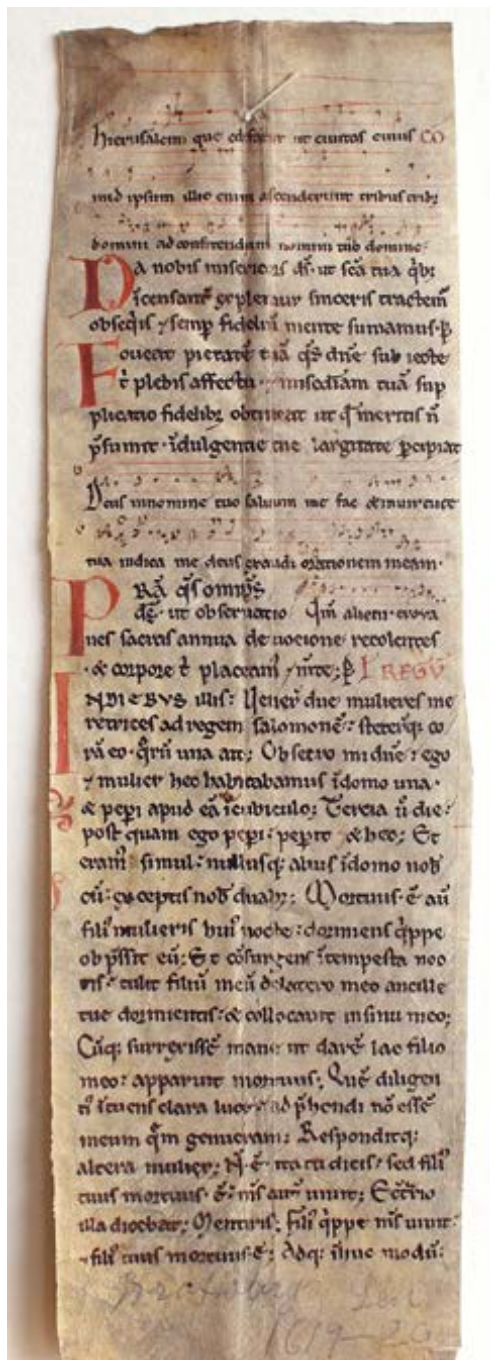 hierusalem que edificatur ut ciuitas cuius CO
in id ipsum illic enim ascenderunt tribus trib;
domini ad confitendum nomini tuo domine·
DA nobis misericors dś· ut scā tua qͥb;
īcessant̄ explemur sinceris tractem̄
obseqͥis ⁊ semp fideliū mente sumamus· ꝑ
Foueat pietatē tuā qs̄ dn̄e sub iecte
t̄ plebis affectu· ⁊ misc̄diam tuā sup
plicatio fidelib; obtineat ut qͥ meritis n̄
p̄sumit· īdulgentie tue largitate ꝑcipiat
Deus in nomine tuo saluum me fac & in uirtute
tua iudica me deus exaudi orationem meam·
PRA qs̄ omīps
dś· ut obseruatio Qm̄ alieni
nes sacras annua deuocione recolentes
· & corpore t̄ placeam̄ ⁊ m̄te; ꝑ L REGV̄
INDIEBVS illis: Uener̄ due mulieres me
retrices ad regem salomonē: steterq; co
rā eo· qͬrū una ait; Obsecro mi dn̄e: ego
⁊ mulier hec habitabamus īdomo una·
& peperi apud eā īcubiculo; Tercia ū die:
post quam ego peperi: peperit & hec; Et
eram̄ simul: nullusq; alius īdomo nob̄
cū: exceptis nob̄ duab;; Mortuus· ē· aū
filiꝰ mulieris huiꝰ nocte: dormiens qͥppe
obp̄ssit eū; Et cōsurgens ītempesta noc
tis: tulit filiū meū de latere meo ancille
tue dormientis: & collocauit in sinu meo;
Cūq; surrexissē mane ut darē lac filio
meo: apparuit mortuus; Quē diligen
tiꝰ ītuens clara luce: adp̄hendi nō essē
meum quē genueram; Responditq;
altera mulier; N̄· ē· ita ut dicis: sed filiꝰ
tuus mortuus· ē: mꝰs aut̄ uiuit; Ectͣrio
illa dicebat; Mentiris; filiꝰ qͥppe mꝰs uiuit:
⁊ filiꝰ tuus mortuus· ē· Adq; īhuc modū:
1619–20